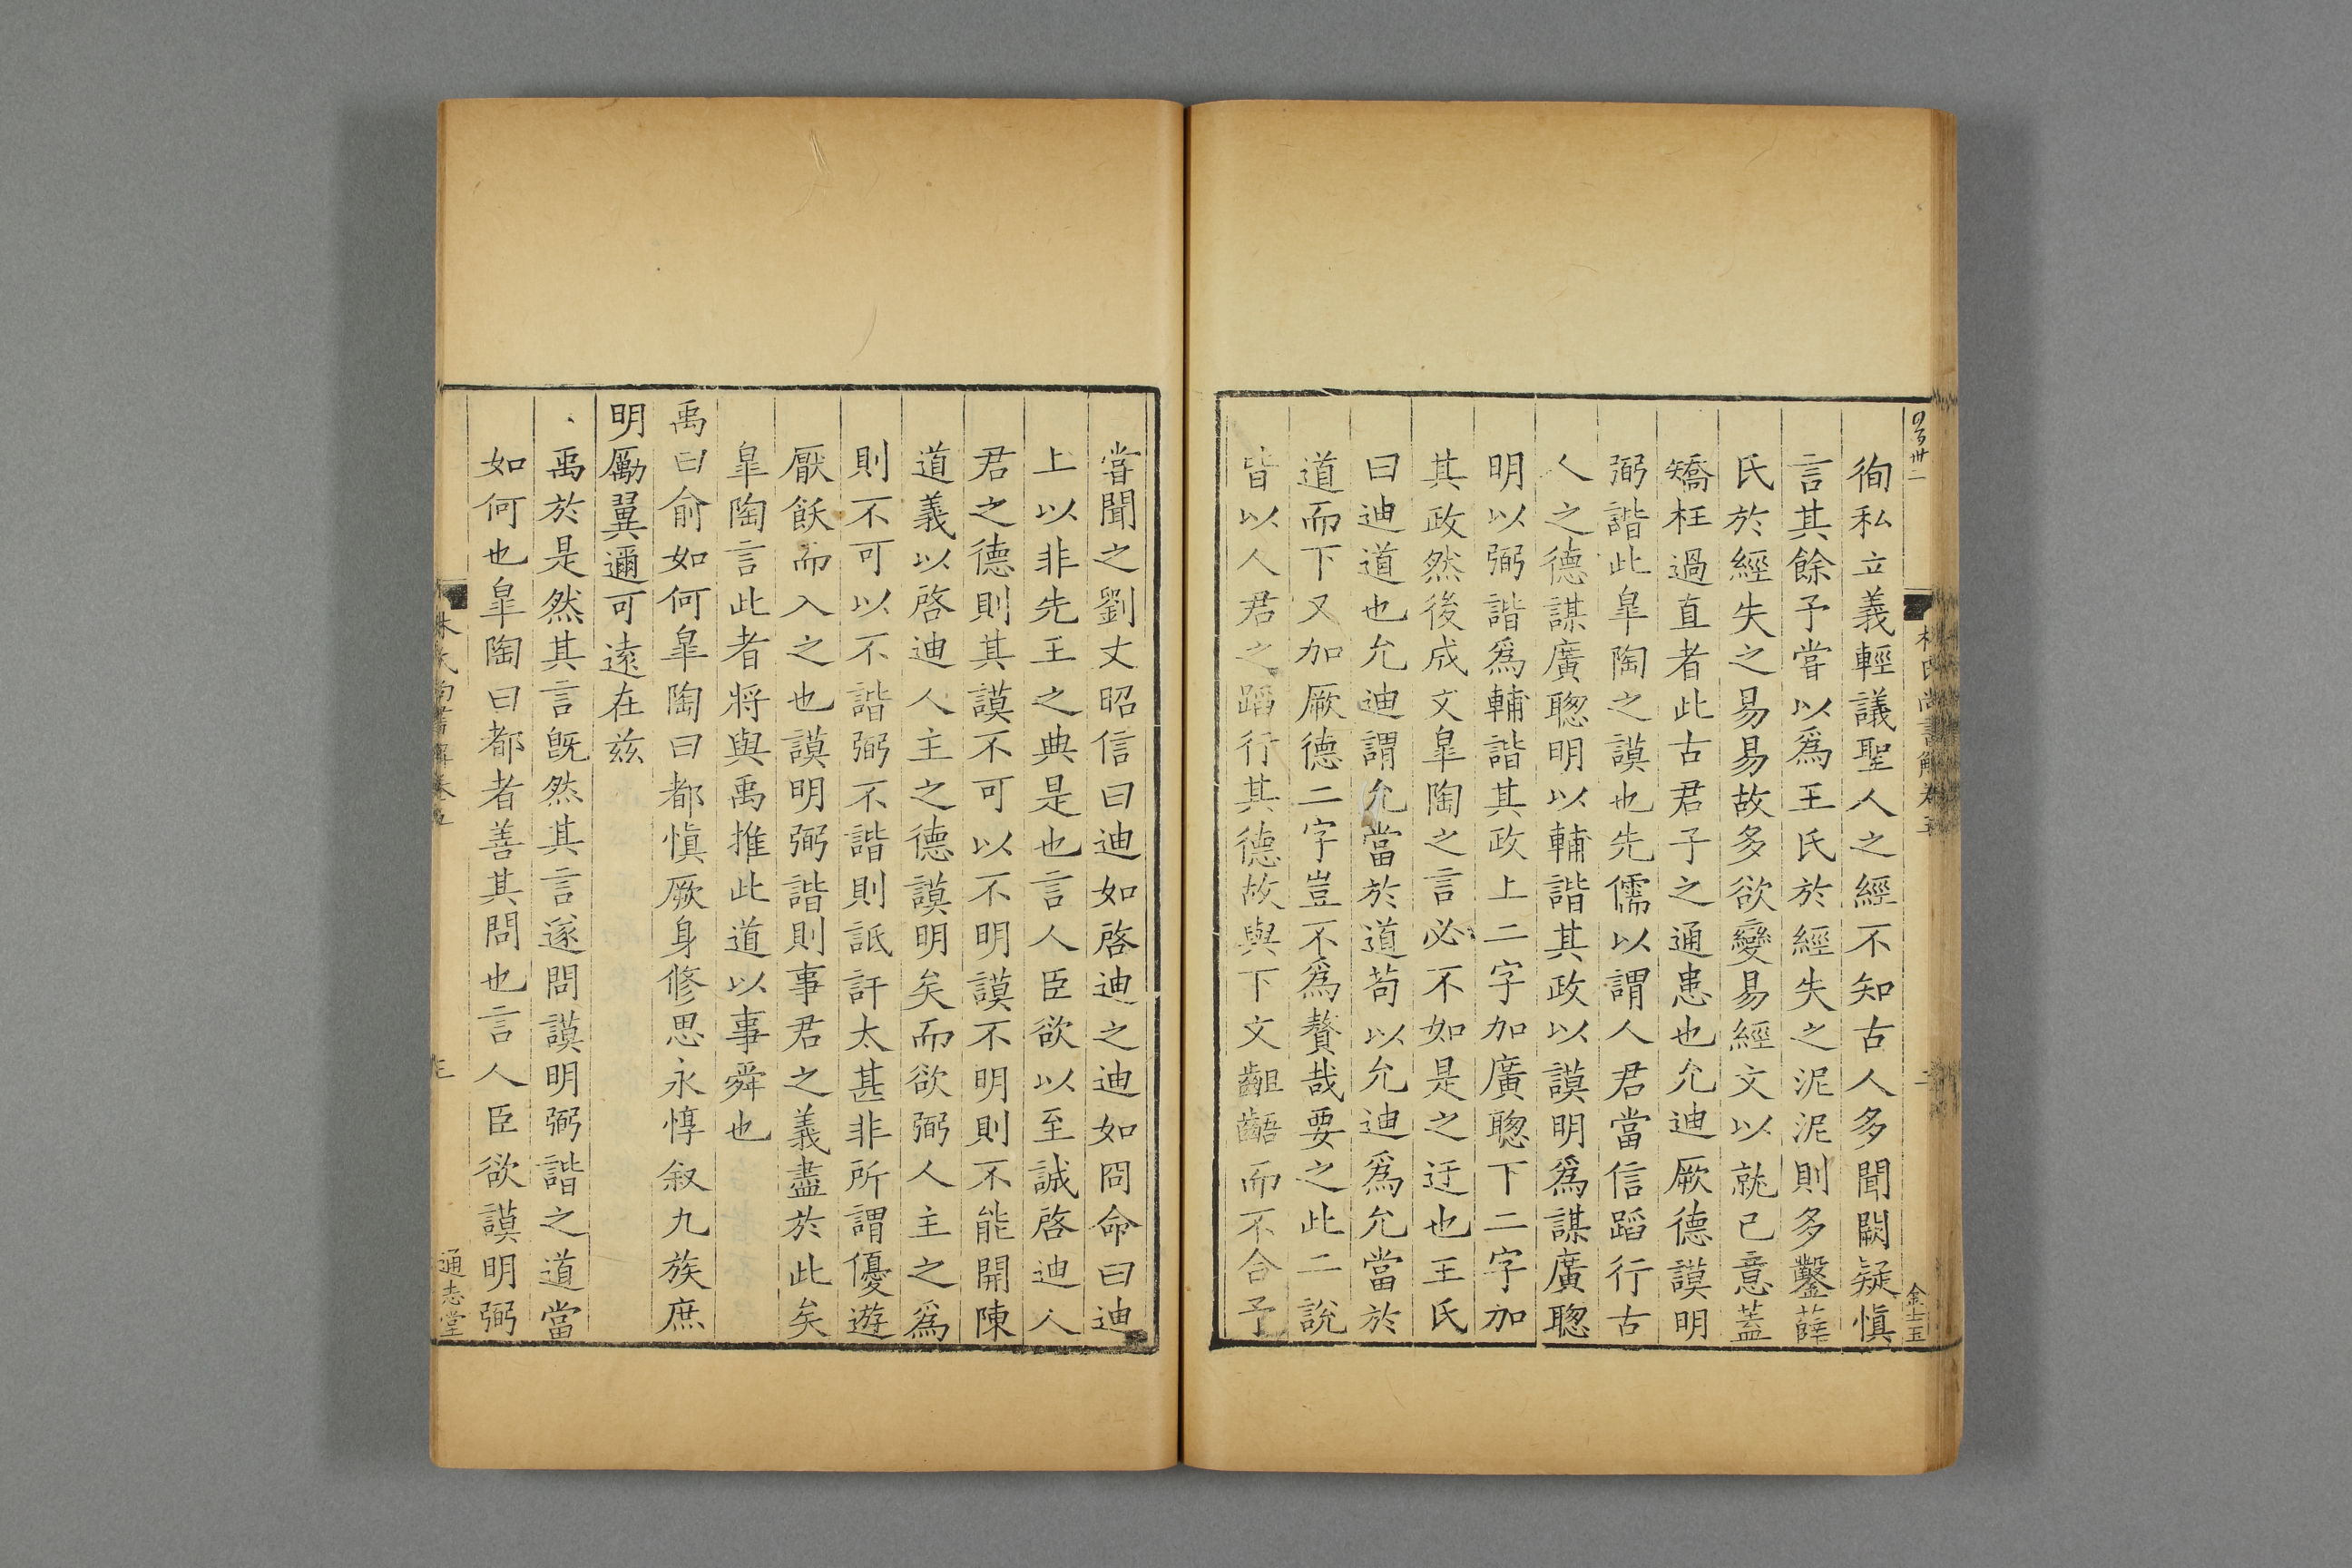 林氏尚書解卷五
二
金士玉
徇私立義輕議聖人之經不知古人多聞闕疑愼
言其餘予嘗以爲王氏於經失之泥泥則多鑿薛
氏於經失之易易故多欲變易經文以就己意蓋
矯枉過直者此古君子之通患也允迪厥德謨明
弼諧此臯陶之謨也先儒以謂人君當信蹈行古
人之德謀廣聰明以輔諧其政以謨明爲謀廣聰
明以弼諧爲輔諧其政上二字加廣聰下二字加
其政然後成文臯陶之言必不如是之迂也王氏
曰迪道也允迪謂允當於道苟以允迪爲允當於
道而下又加厥德二字豈不爲贅哉要之此二說
皆以人君之蹈行其德故與下文齟齬而不合予
嘗聞之劉丈昭信曰迪如啓迪之迪如冏命曰迪
上以非先王之典是也言人臣欲以至誠啓迪人
君之德則其謨不可以不明謨不明則不能開陳
道義以啓迪人主之德謨明矣而欲弼人主之爲
則不可以不諧弼不諧則詆訐太甚非所謂優遊
厭飫而入之也謨明弼諧則事君之義盡於此矣
臯陶言此者將與禹推此道以事舜也
禹曰俞如何臯陶曰都愼厥身修思永惇叙九族庶
明勵翼邇可遠在玆
禹於是然其言旣然其言遂問謨明弼諧之道當
如何也臯陶曰都者善其問也言人臣欲謨明弼
林氏尚書解卷五
通志堂